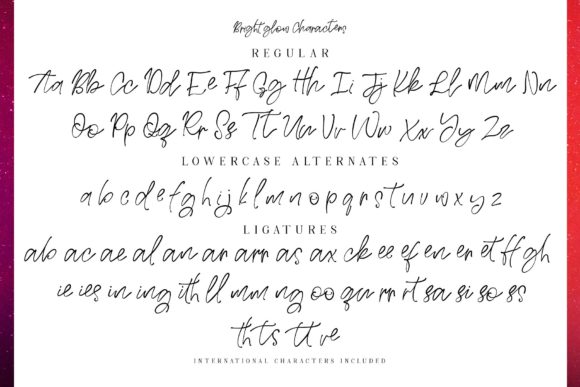 Bright glow Characters
REGULAR
Aa Bb Cc Dd Ee Ff Gg Hh Ii Jj Kk Ll Mm Nn
Oo Pp Qq Rr Ss Tt Uu Vv Ww Xx Yy Zz
LOWERCASE ALTERNATES
a b c d e f g h i j k l m n o p q r s t u v w x y z
LIGATURES
ab ac ae al an ar arr as ax ck ee ef en er et ff gh
ie ies in ing ith ll mm ng oo qu rr rt sa si so ss
th ts tt ve
INTERNATIONAL CHARACTERS INCLUDED